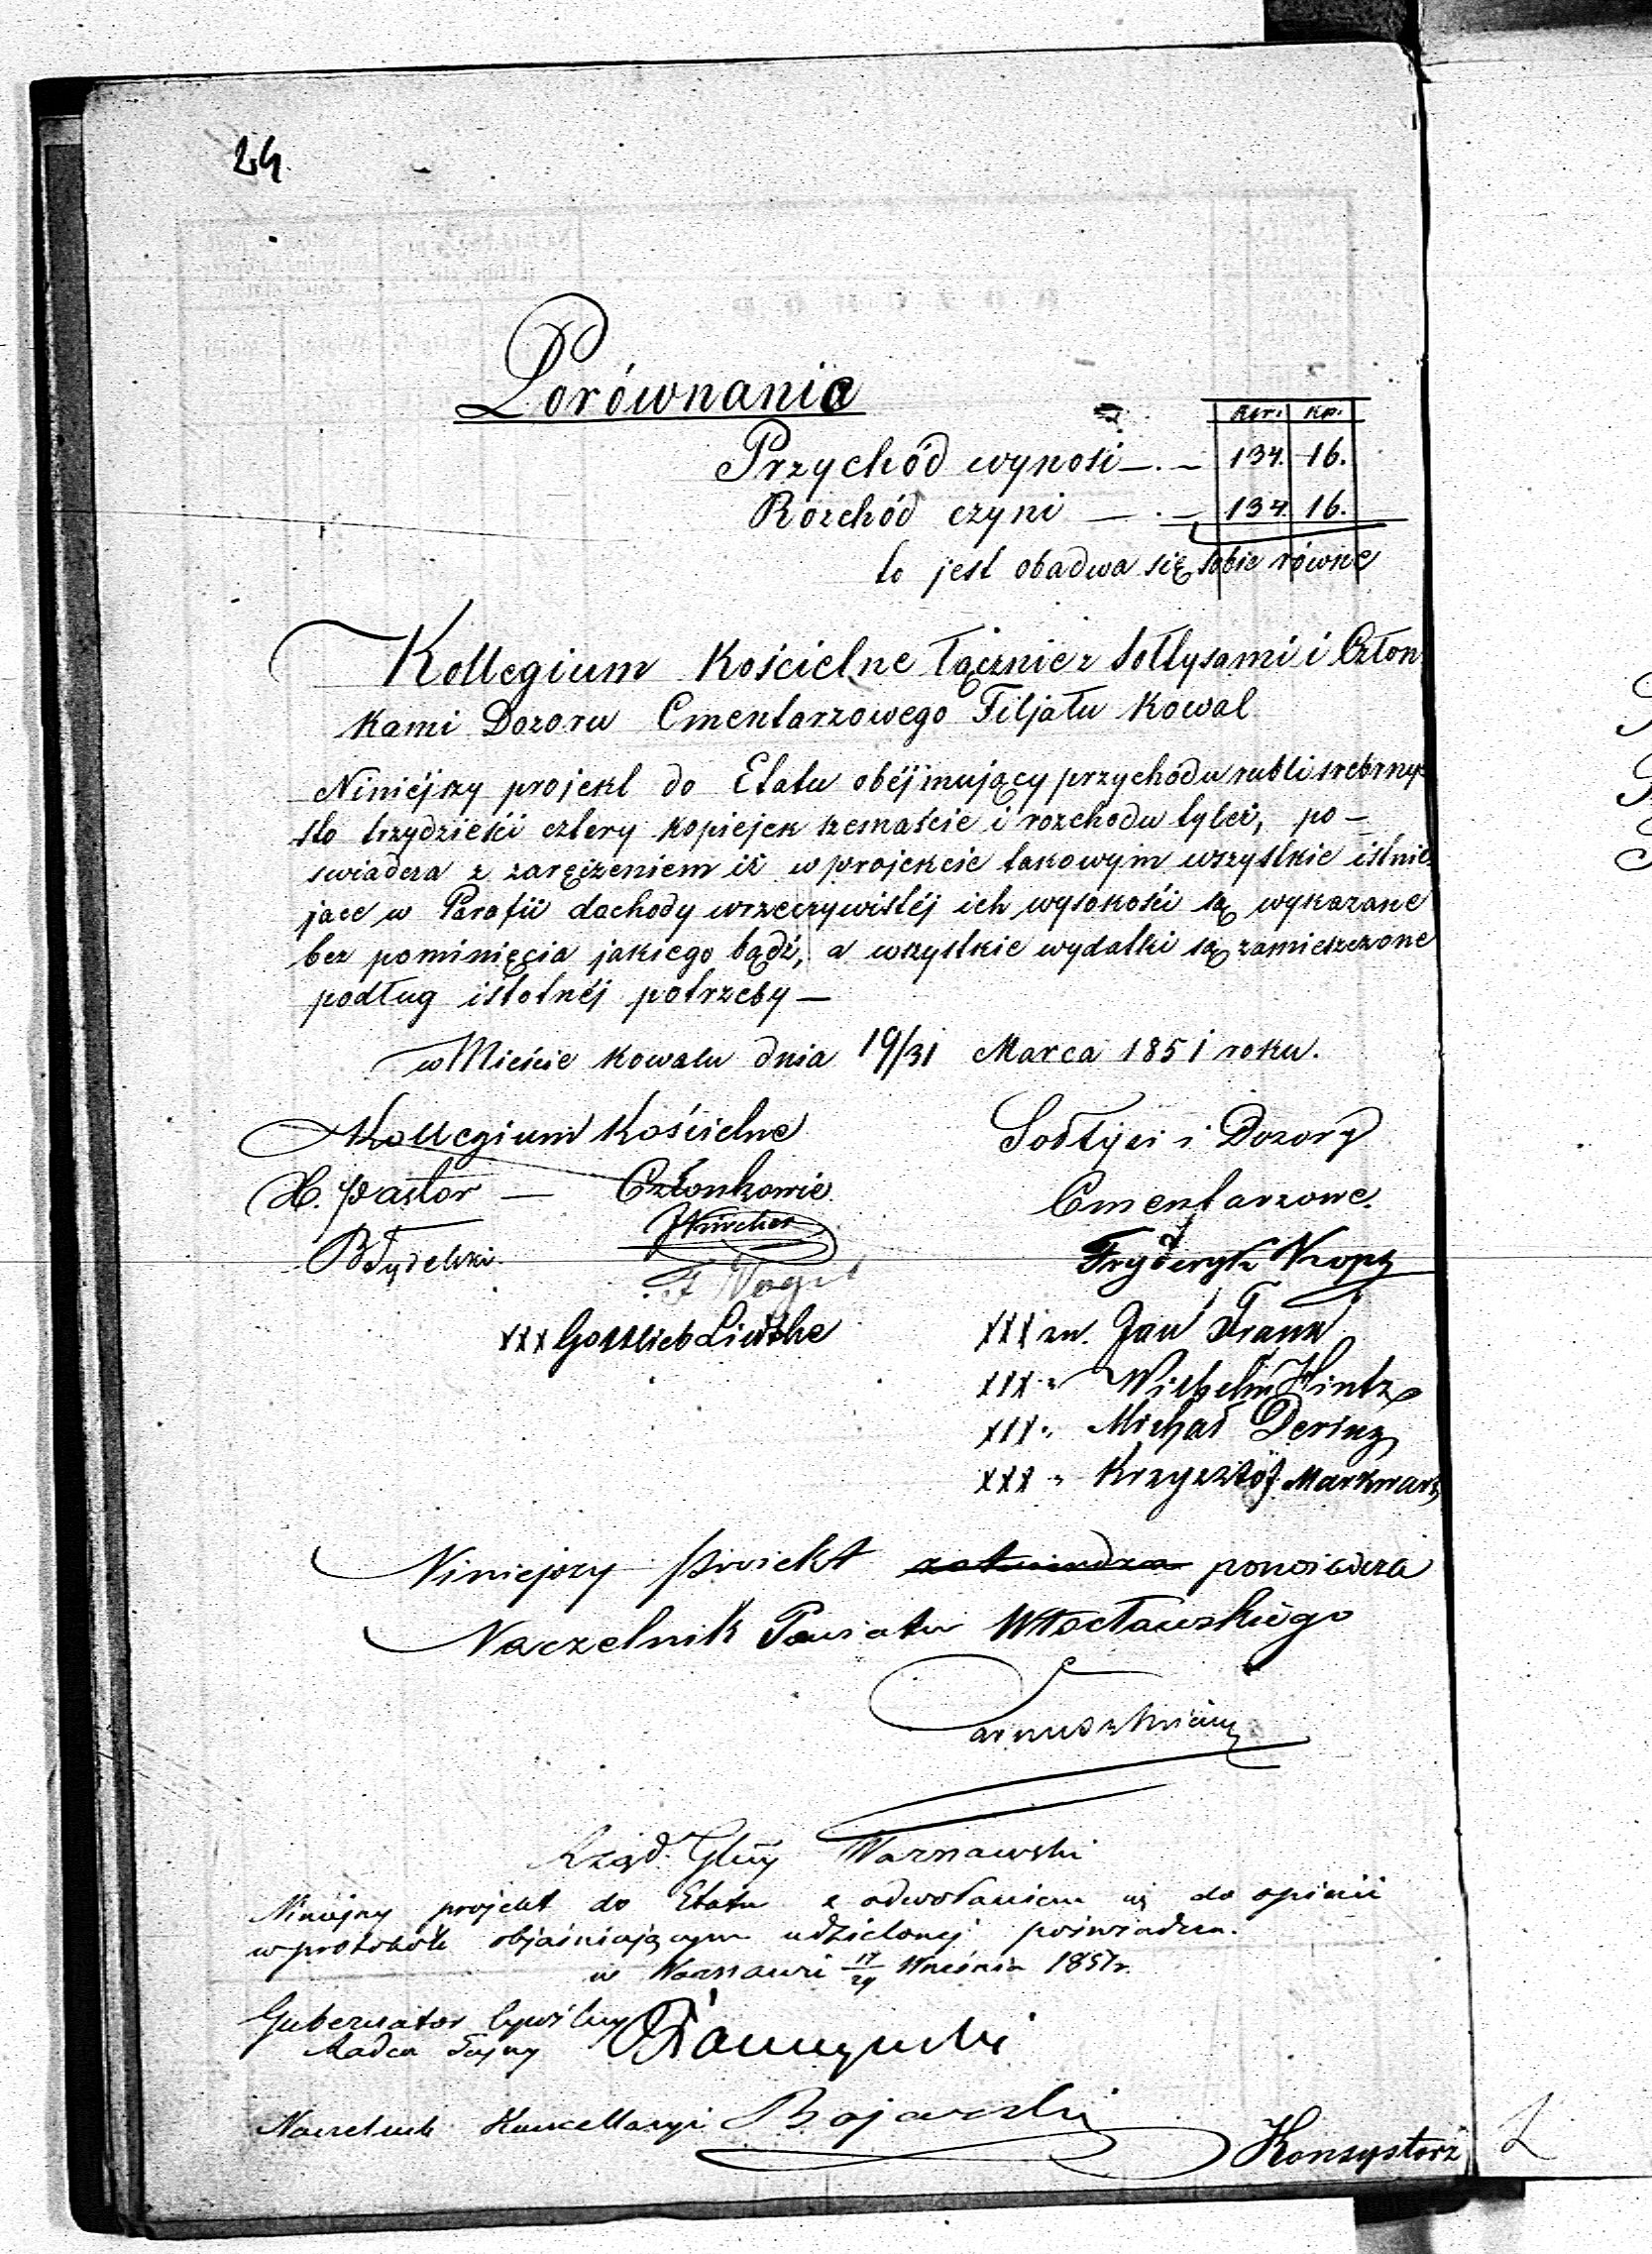 24.
Porównanie
Rsr. kp.
Przychód wynosi —.— 134. 16.
Rozchód czyni —.— 134. 16.
to jest obadwa się sobie równe
Kollegium Kościelne łącznie z Sołtysami i Człon
kami Dozoru Cmentarzowego Filjału Kowal
Niniéjszy projekt do Etatu obéjmujący przychodu rubli srebrnych
sto trzydzieści cztery kopiejek szesnaście i rozchodu tyleż, po-
swiadcza z zaręczeniem iż w projekcie takowym wszystkie istnie
jące w Parafii dochody wrzeczywistéj ich wysokości są wykazane
bez pominięcia jakiego bądź, a wszystkie wydatki są zamieszczone
podług istotnéj potrzeby —
w Mieście Kowalu dnia 19/31 Marca 1851 roku.
Kollegium Kościelne
X. Pastor — Członkowie
F Vogt
XXX Gottlieb Liedtke
Sołtysi i Dozory
Cmentarzowe.
Fryderyk Kropp
XXX zn. Jan Frank
XXX " Wilhelm Hintz
XXX " Michał
XXX " Krzysztof Markwart
Niniejszy proiekt zatwierdza poswiadcza
Naczelnik Powiatu Włocławskiego
Rząd Gbny Warszawski
Niniejszy projekt do Etatu z odwołaniem się do opinii
w protokóle objaśniającym udzielonej poświadcza.
w Warszawie 17/29 Września 1851 r.
Gubernator Cywilny
Radca Tajny
Naczelnik Kancellaryi Bojarski
Konsystorz